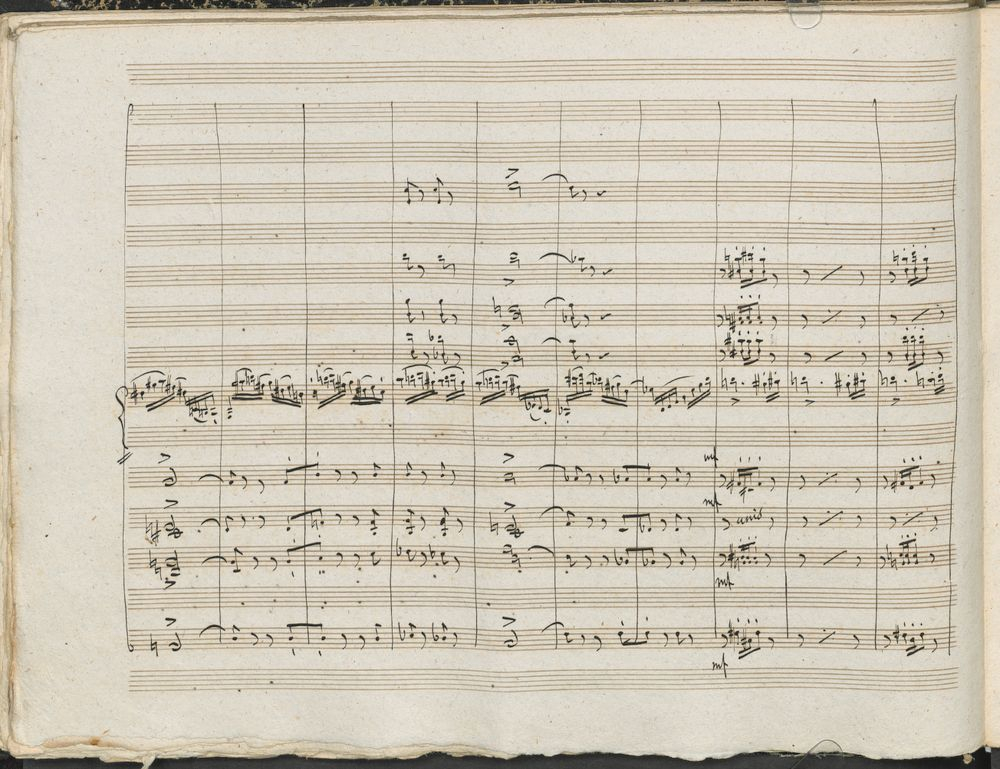 mf
mf
unis
mf
mf